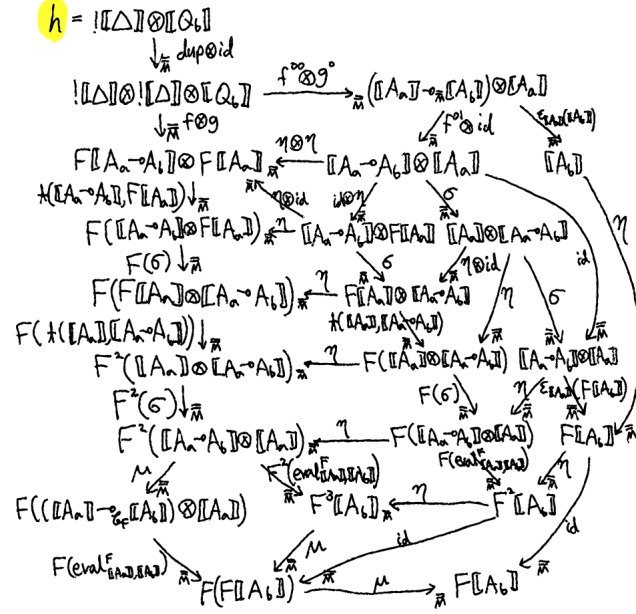 h = !⟦Δ⟧⊗⟦Q_b⟧
↓_M̿ dup⊗id
!⟦Δ⟧⊗!⟦Δ⟧⊗⟦Q_b⟧ —f^∞⊗g^0→_M̿ (⟦A_a⟧⊸_M̿⟦A_b⟧)⊗⟦A_a⟧
↓_M̿ f⊗g f^01⊗id M̿ ε_⟦A_a⟧(⟦A_b⟧) M̿
F⟦A_a⊸A_b⟧⊗F⟦A_a⟧_M̿ ←η⊗η— ⟦A_a⊸A_b⟧⊗⟦A_a⟧ ⟦A_b⟧
t(⟦A_a⊸A_b⟧,F⟦A_a⟧)↓_M̿ η⊗id id⊗η M̿ σ M̿ η
F(⟦A_a⊸A_b⟧⊗F⟦A_a⟧)_M̿ ←η— ⟦A_a⊸A_b⟧⊗F⟦A_a⟧ ⟦A_a⟧⊗⟦A_a⊸A_b⟧
F(σ)↓_M̿ σ M̿ M̿ η⊗id η σ id
F(F⟦A_a⟧⊗⟦A_a⊸A_b⟧)_M̿ ←η— F⟦A_a⟧⊗⟦A_a⊸A_b⟧
F(t(⟦A_a⟧,⟦A_a⊸A_b⟧))↓_M̿ t(⟦A_a⟧,⟦A_a⊸A_b⟧) M̿ M̿ M̿ M̿
F²(⟦A_a⟧⊗⟦A_a⊸A_b⟧)_M̿ ←η— F(⟦A_a⟧⊗⟦A_a⊸A_b⟧) ⟦A_a⊸A_b⟧⊗⟦A_a⟧
F²(σ)↓_M̿ F(σ) M̿ η M̿ ε_⟦A_a⟧(F⟦A_b⟧) M̿
F²(⟦A_a⊸A_b⟧⊗⟦A_a⟧)_M̿ ←η— F(⟦A_a⊸A_b⟧⊗⟦A_a⟧) F⟦A_b⟧_M̿
μ M̿ F²(eval^F_⟦A_a⟧,⟦A_b⟧) M̿ F(eval^F_⟦A_a⟧,⟦A_b⟧) M̿ η M̿
F((⟦A_a⟧⊸_𝒞F⟦A_b⟧)⊗⟦A_a⟧) F³⟦A_b⟧_M̿ ←η— F²⟦A_b⟧ id
F(eval^F_⟦A_a⟧,⟦A_b⟧) M̿ μ M̿ id M̿ M̿
F(F⟦A_b⟧) —μ→_M̿ F⟦A_b⟧